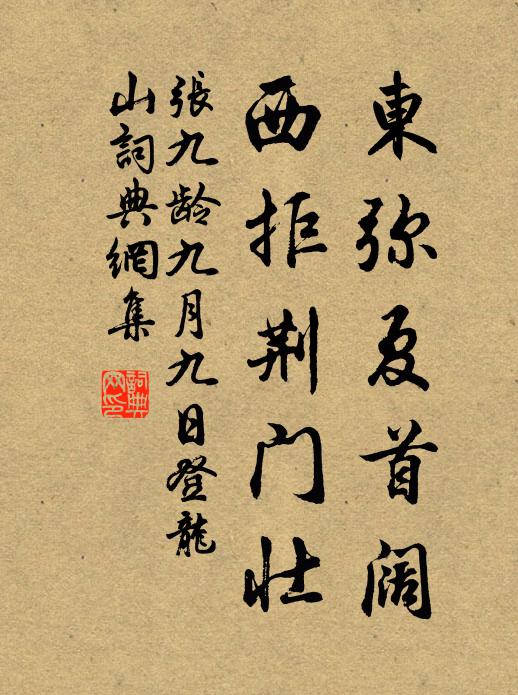 東弥夏首阔
西拒荆门壮
張九龄九月九日登龍
山詞典網集
詞典
网印